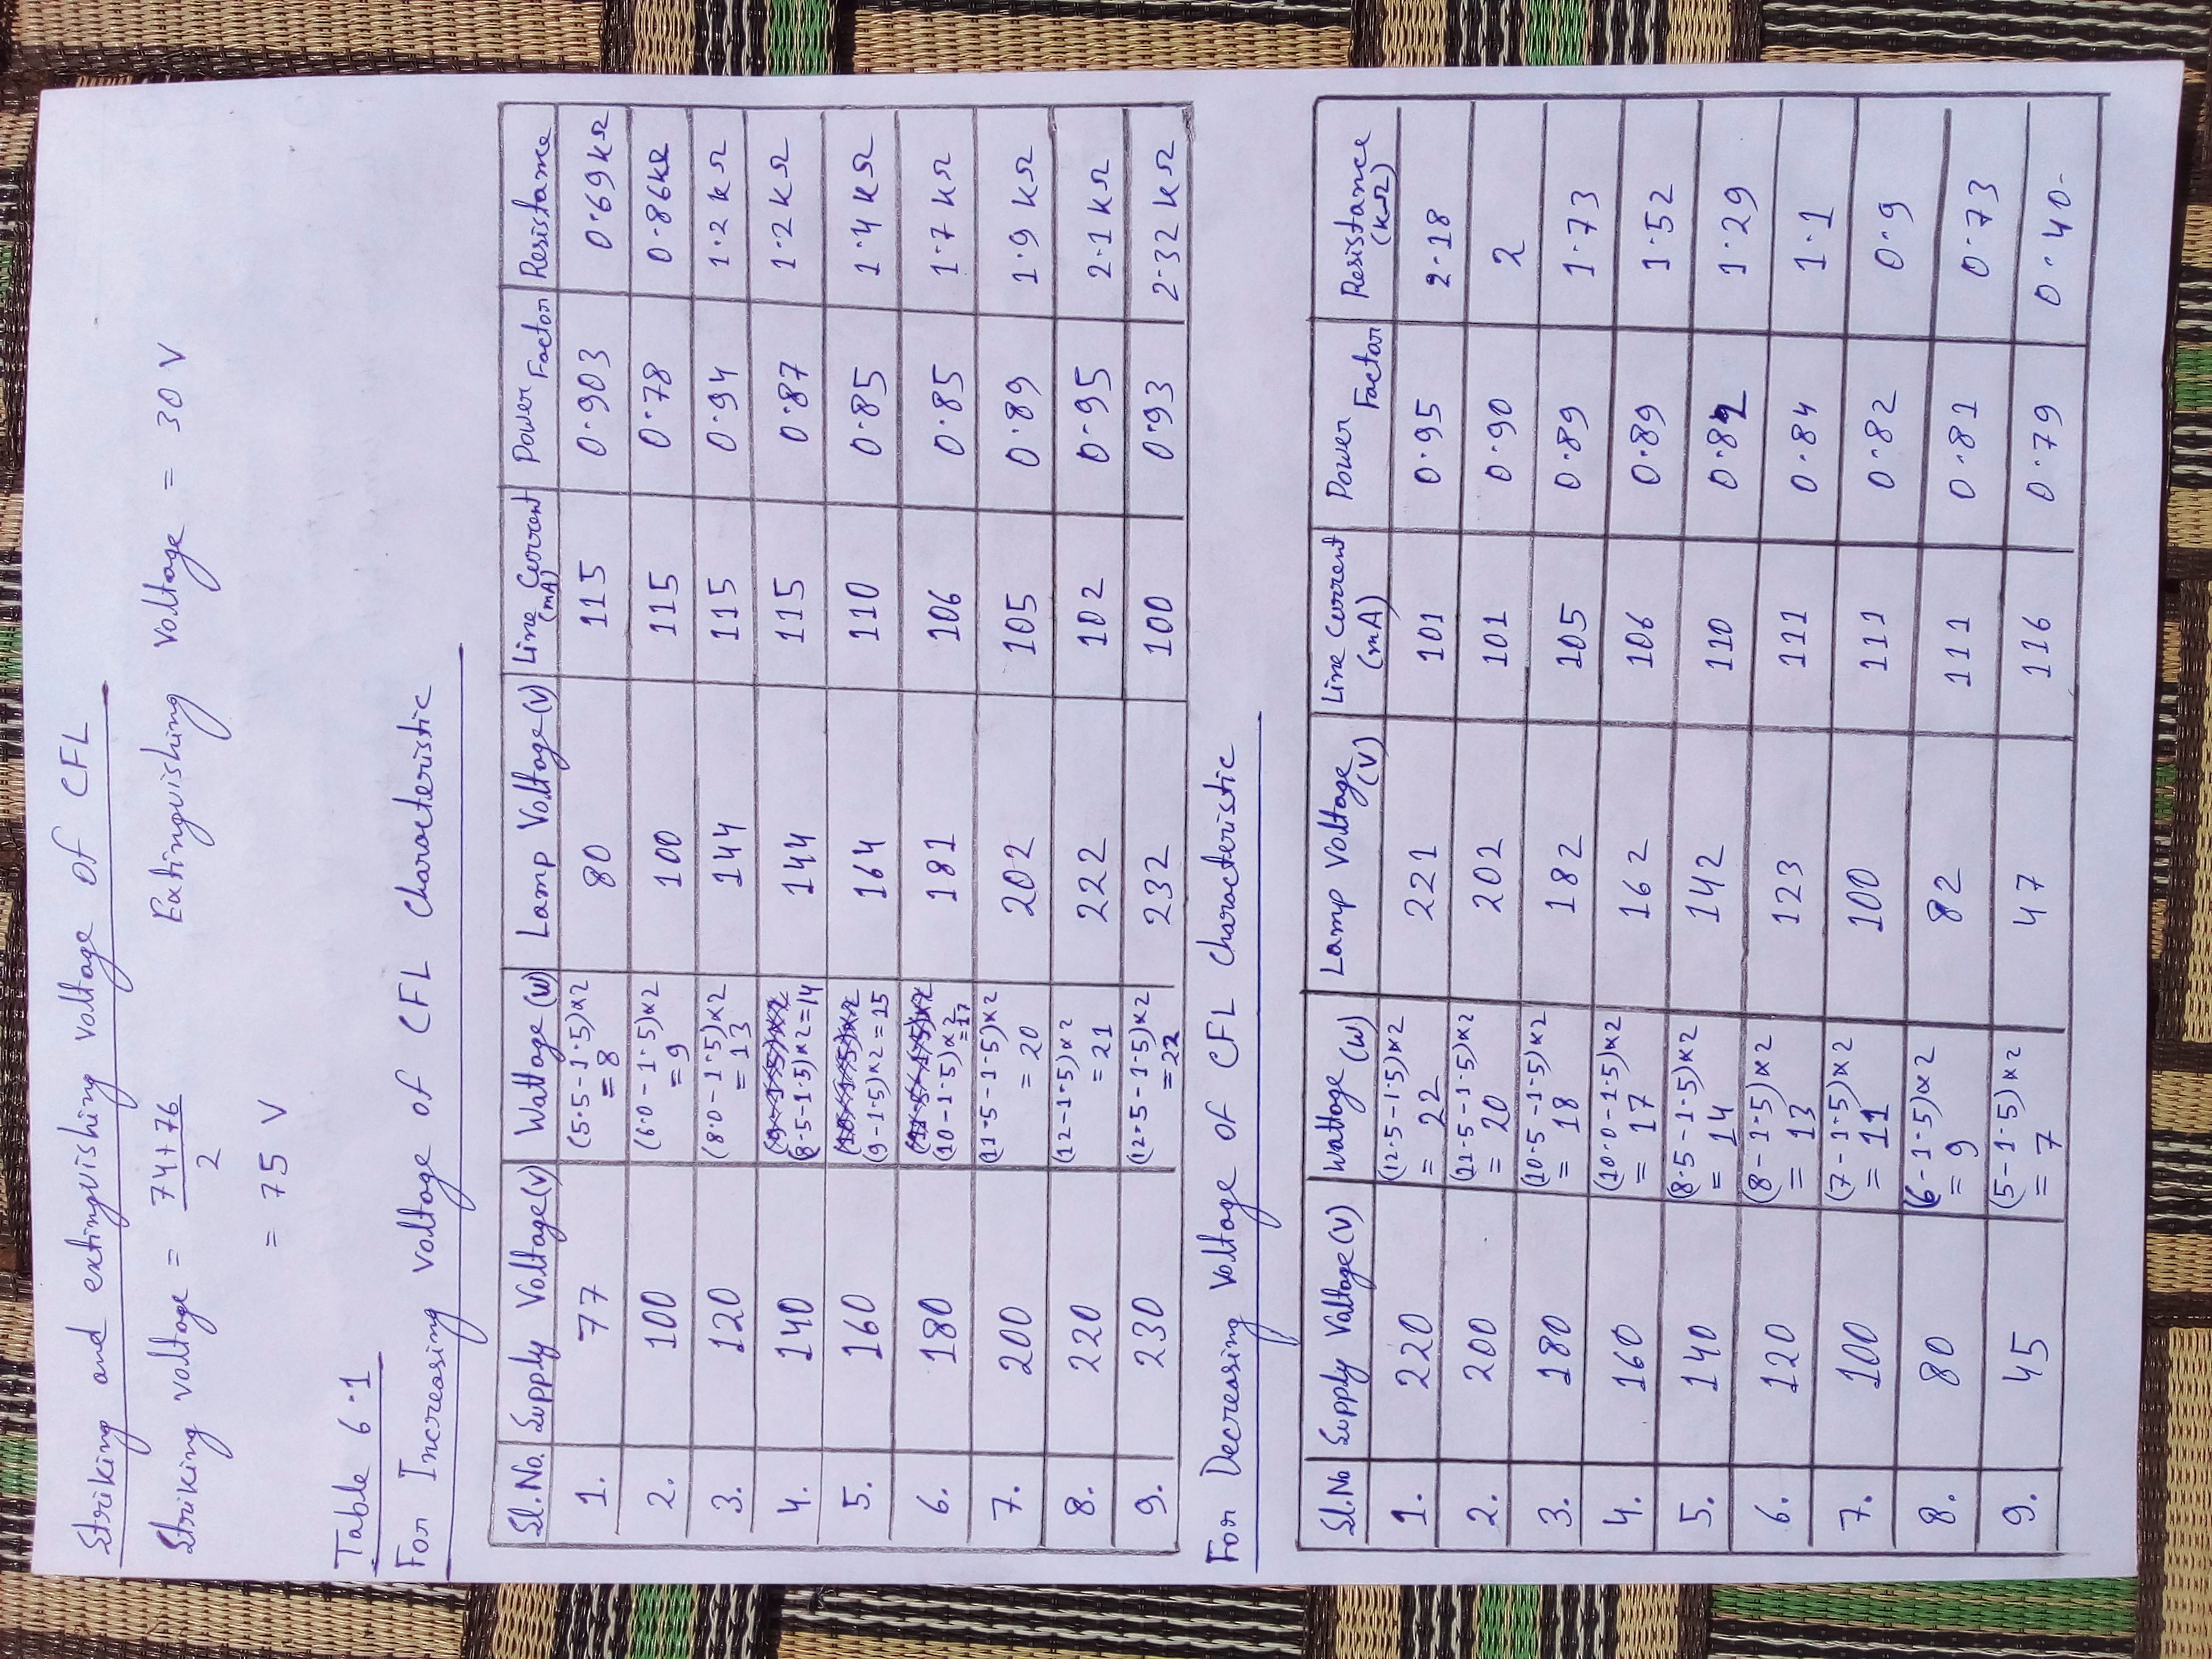 Striking and extinguishing voltage of CFL
Striking voltage = 74+76 / 2 Extinguishing Voltage = 30 V
= 75 V
Table 6.1
For Increasing voltage of CFL Characteristic
Sl. No. Supply Voltage (V) Wattage (W) Lamp Voltage (V) Line Current (mA) Power Factor Resistance
1. 77 (5.5-1.5)×2 = 8 80 115 0.903 0.69 kΩ
2. 100 (6.0-1.5)×2 = 9 100 115 0.78 0.86 kΩ
3. 120 (8.0-1.5)×2 = 13 144 115 0.94 1.2 kΩ
4. 140 (9-1.5)×2 (8.5-1.5)×2=14 144 115 0.87 1.2 kΩ
5. 160 (10-1.5)×2 (9-1.5)×2=15 164 110 0.85 1.4 kΩ
6. 180 (11.5-1.5)×2 (10-1.5)×2 =17 181 106 0.85 1.7 kΩ
7. 200 (11.5-1.5)×2 = 20 202 105 0.89 1.9 kΩ
8. 220 (12-1.5)×2 = 21 222 102 0.95 2.1 kΩ
9. 230 (12.5-1.5)×2 = 22 232 100 0.93 2.32 kΩ
For Decreasing Voltage of CFL Characteristic
Sl. No Supply Voltage (V) Wattage (W) Lamp Voltage (V) Line Current (mA) Power Factor Resistance (kΩ)
1. 220 (12.5-1.5)×2 = 22 221 101 0.95 2.18
2. 200 (11.5-1.5)×2 = 20 202 101 0.90 2
3. 180 (10.5-1.5)×2 = 18 182 105 0.89 1.73
4. 160 (10.0-1.5)×2 = 17 162 106 0.89 1.52
5. 140 (8.5-1.5)×2 = 14 142 110 0.82 1.29
6. 120 (8-1.5)×2 = 13 123 111 0.84 1.1
7. 100 (7-1.5)×2 = 11 100 111 0.82 0.9
8. 80 (6-1.5)×2 = 9 82 111 0.81 0.73
9. 45 (5-1.5)×2 = 7 47 116 0.79 0.40